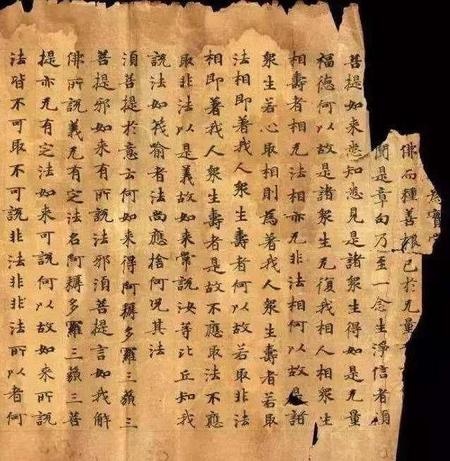 為實
佛而種善根已於无量
聞是章句乃至一念生淨信者須
菩提如来悉知悉見是諸衆生得如是无量
福德何以故是諸衆生无復我相人相衆生
相壽者相无法相亦无非法相何以故是諸
衆生若心取相則為著我人衆生壽者若取
法相即著我人衆生壽者何以故若取非法
相即著我人衆生壽者是故不應取法不應
取非法以是義故如来常說汝等比丘知我
說法如筏喻者法尚應捨何况其法
須菩提於意云何如来得阿耨多羅三藐三
菩提邪如来有所說法邪須菩提言如我解
佛所說義无有定法名阿耨多羅三藐三菩
提亦无有定法如来可說何以故如来所說
法皆不可取不可說非法非非法所以者何